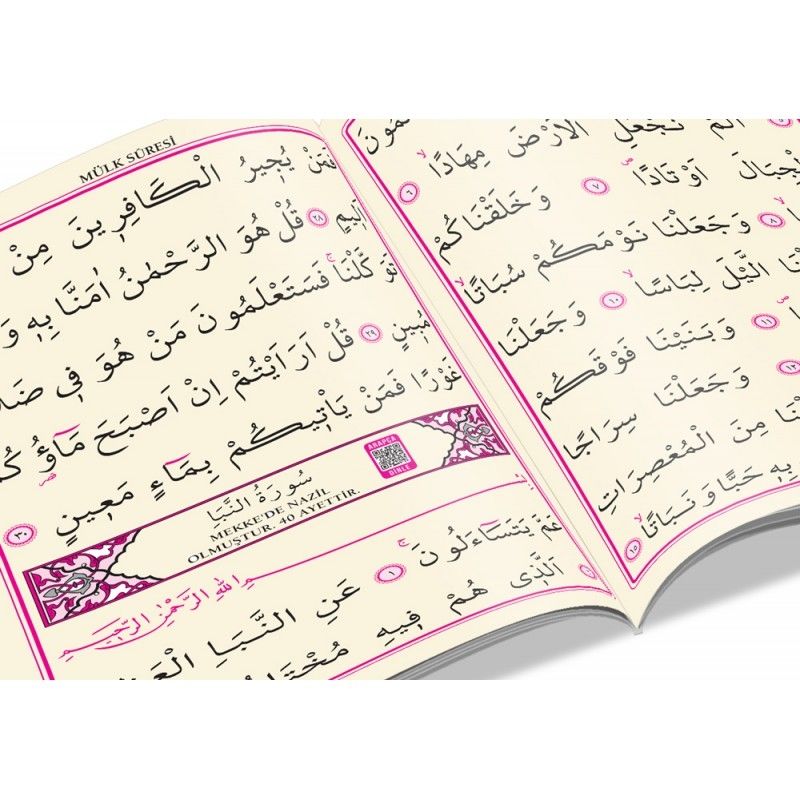 MÜLK SÛRESİ
فَمَنْ يُجِيرُ الْكَافِرِينَ مِنْ
اَلِيمٍ ٢٨ قُلْ هُوَ الرَّحْمٰنُ اٰمَنَّا بِهِ وَ
تَوَكَّلْنَا فَسَتَعْلَمُونَ مَنْ هُوَ فِى
مُبِينٍ ٢٩ قُلْ اَرَاَيْتُمْ اِنْ اَصْبَحَ مَٓاؤُ
غَوْرًا فَمَنْ يَاْتِيكُمْ بِمَٓاءٍ مَعِينٍ ٣٠
ARAPÇA
DİNLE
سُورَةُ النَّبَاِ
MEKKE'DE NAZİL
OLMUŞTUR. 40 AYETTİR.
بِسْمِ اللّٰهِ الرَّحْمٰنِ الرَّحِيمِ
عَمَّ يَتَسَٓاءَلُونَ ١ عَنِ النَّبَاِ
الَّذِى هُمْ فِيهِ
اَلَمْ نَجْعَلِ الْاَرْضَ مِهَادًا ٦
اَوْتَادًا ٧ وَخَلَقْنَاكُمْ
٨ وَجَعَلْنَا نَوْمَكُمْ سُبَاتًا
الَّيْلَ لِبَاسًا ١٠ وَجَعَلْنَا
١١ وَبَنَيْنَا فَوْقَكُمْ
١٢ وَجَعَلْنَا سِرَاجًا
مِنَ الْمُعْصِرَاتِ
بِهِ حَبًّا وَنَبَاتًا ١٥